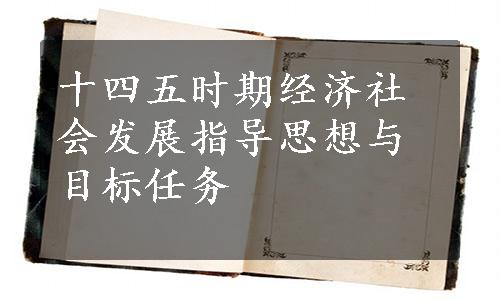 十四五时期经济社
会发展指导思想与
目标任务